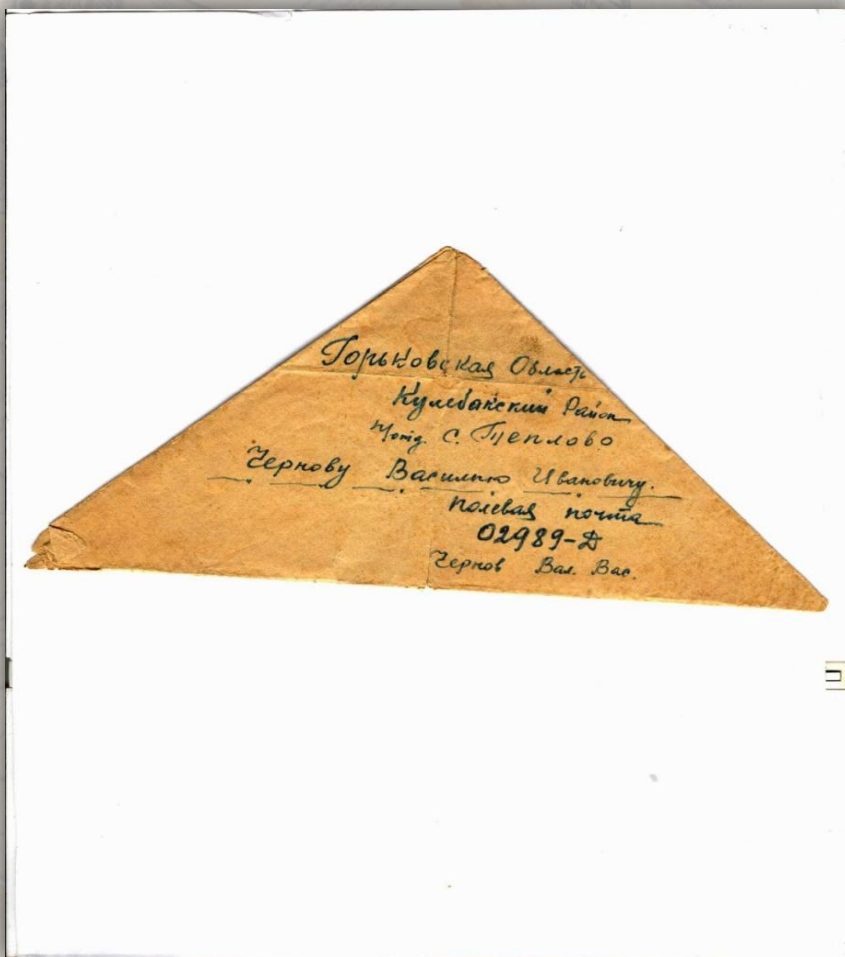 Горьковская Область
Кулебакский Район
с. Теплово
Чернову Василию Ивановичу.
полевая почта
02989-Д
Чернов Вал. Вас.